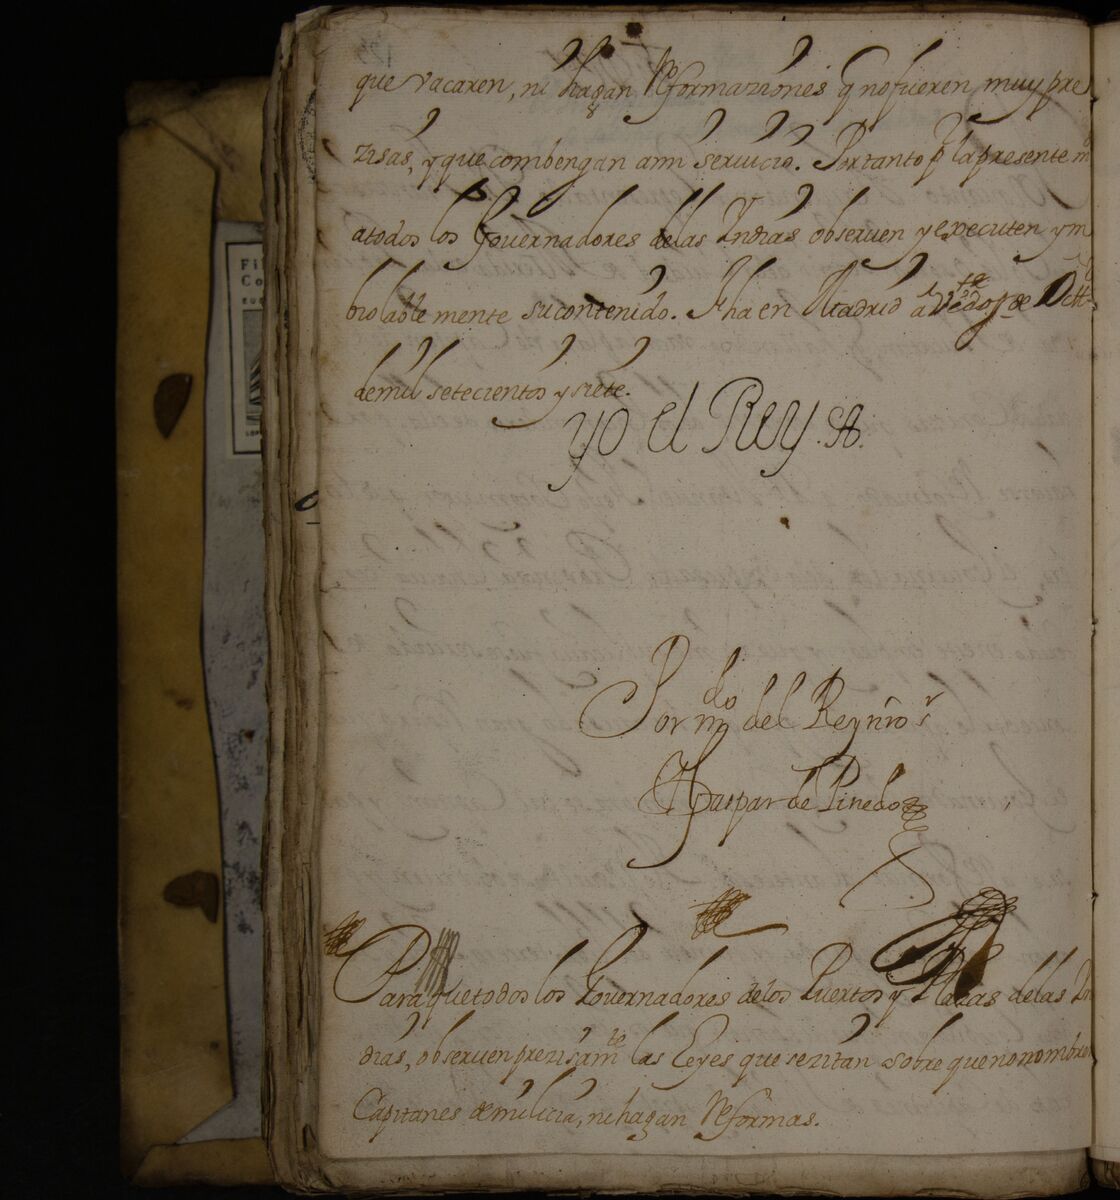 que vacaren, ni hagan Reformaziónes q̃ nofueren muy pre
zisas, y que combengan ami seruicio. Portanto p̃ lapresente m
atodos los Gouernadores delas Indias obseruen y executen ym
biolable mente sucontenido. Fha en Madrid a de
demil setecientos y siete.
yo el Rey
Por mdo del Rey nro sr
Gaspar de Pinedo
Para quetodos los Gouernadores delos Puertos y Plazas delas In
dias, obseruen prezisamte las Leyes que sezitan sobre quenonombren
Capitanes demilicia, nihagan Reformas.